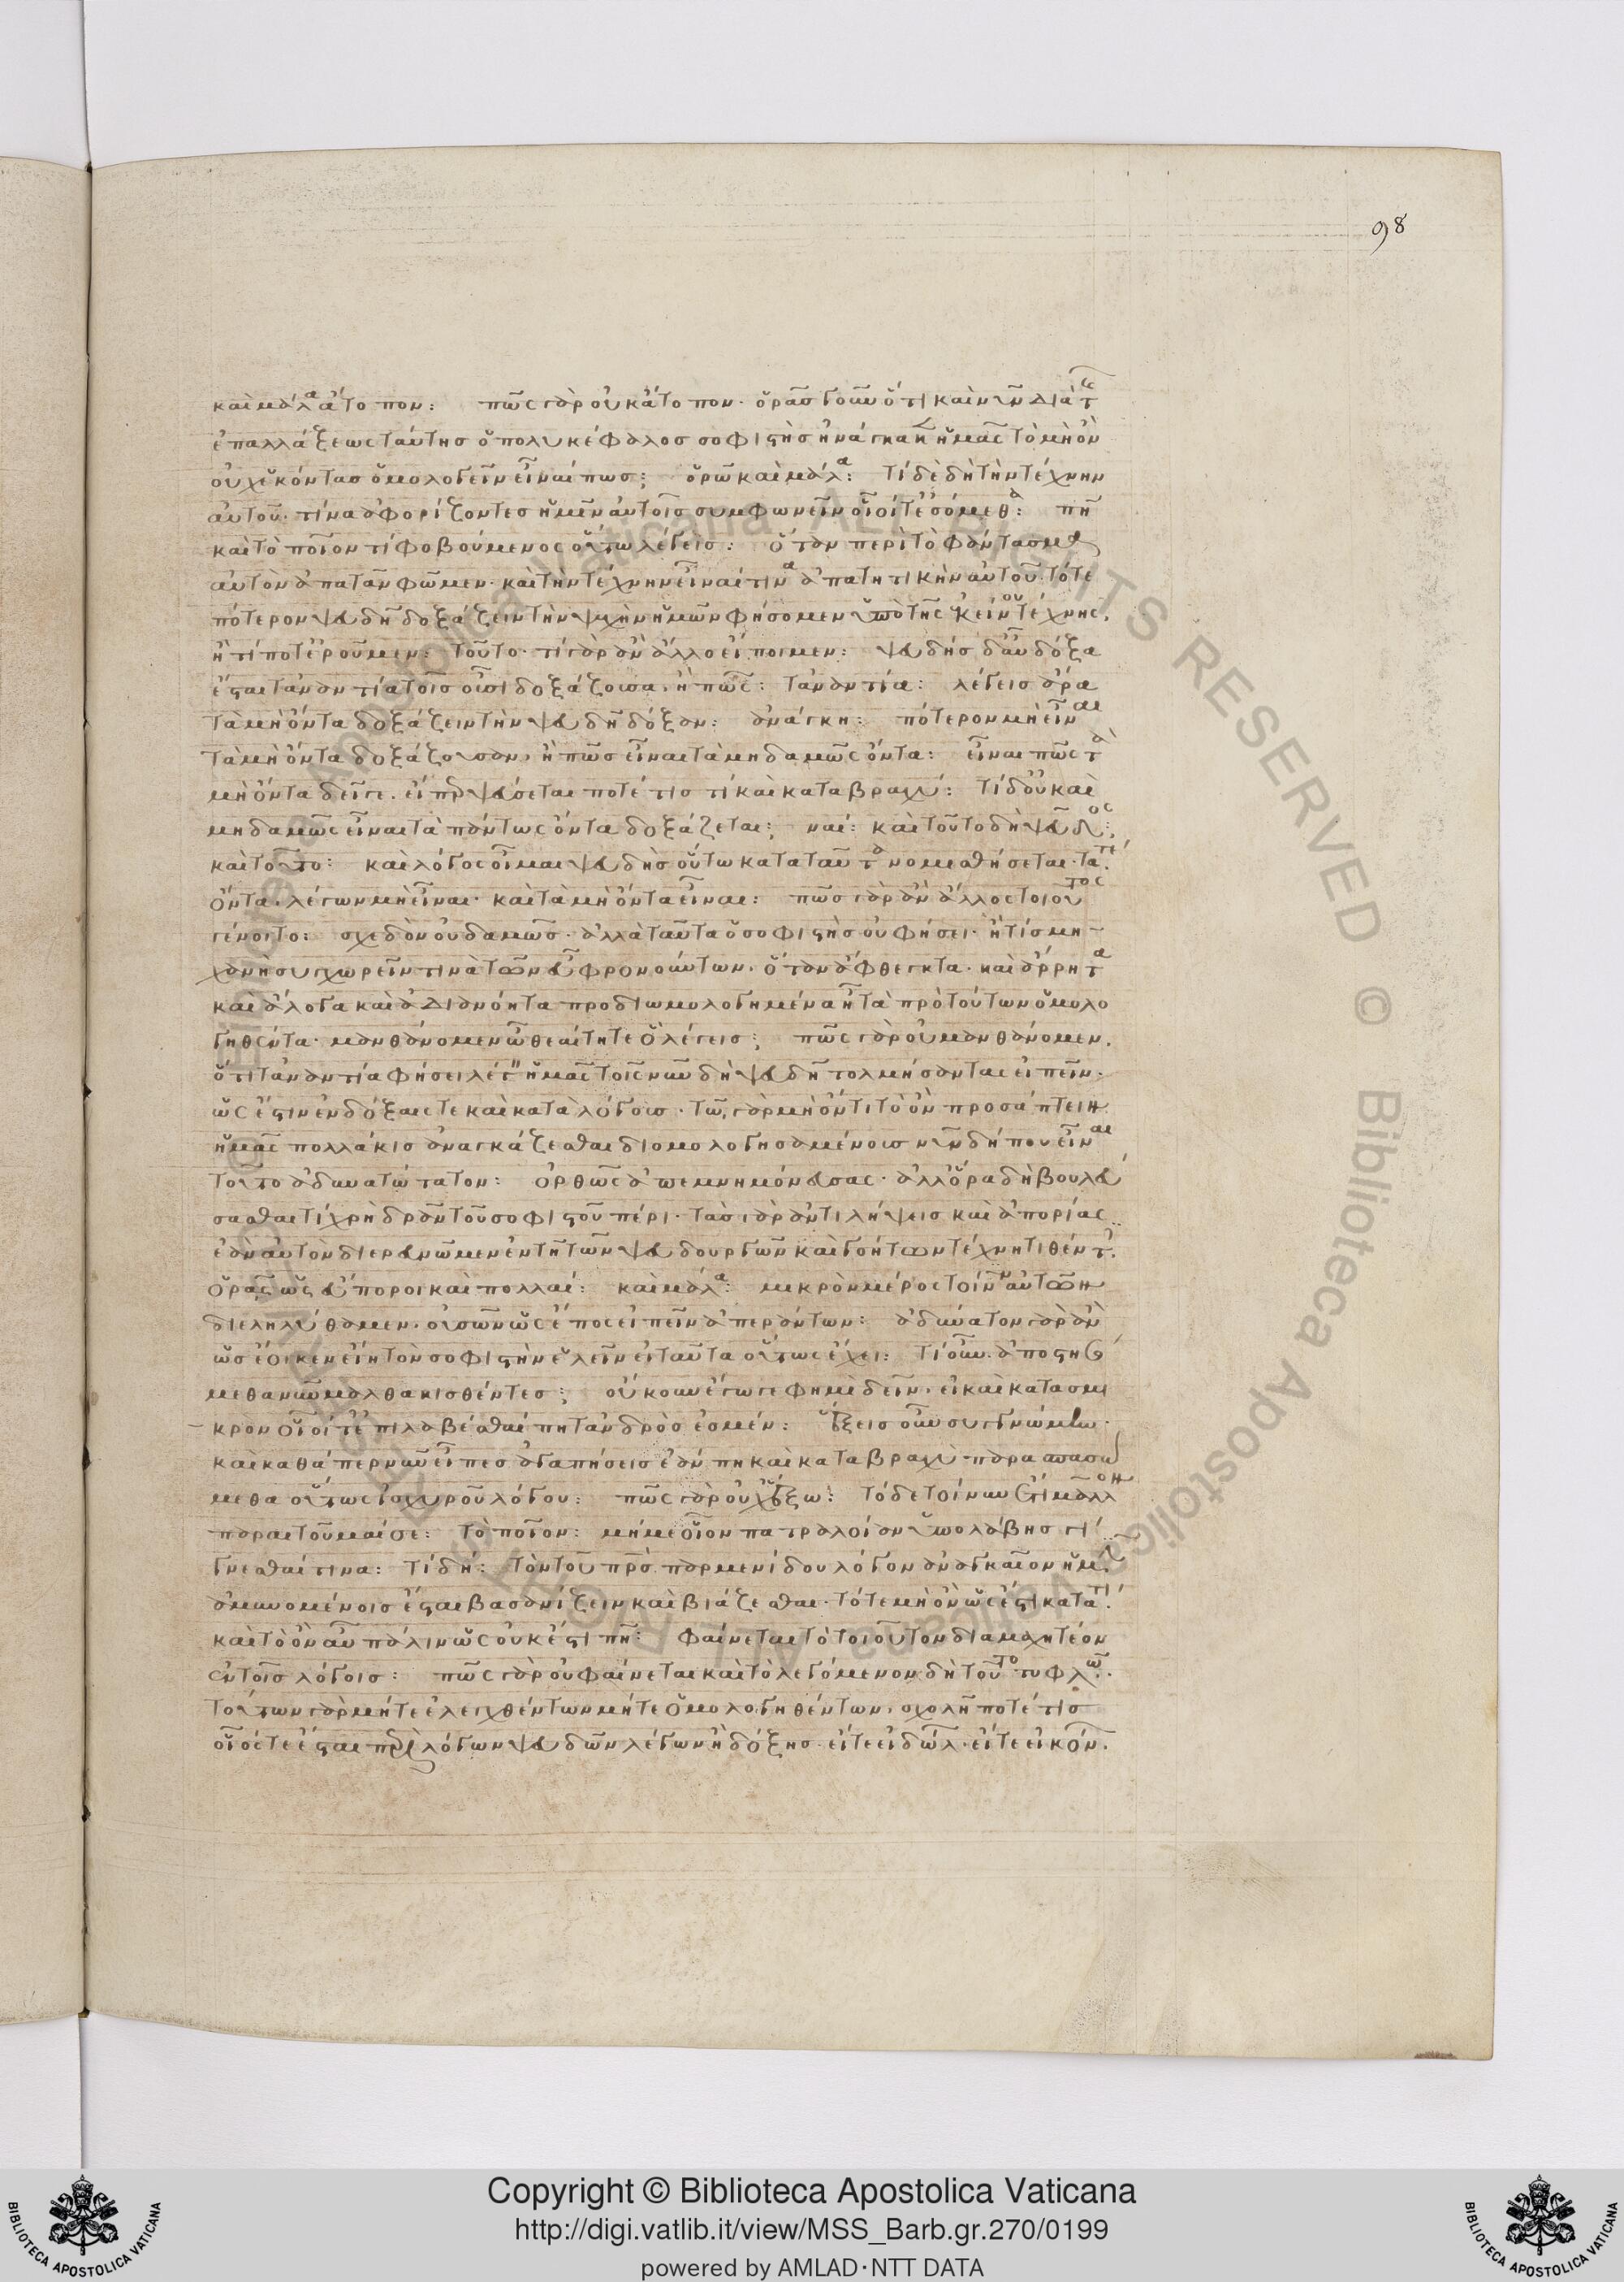 98
καὶ μάλα ἄτοπον: πῶς γὰρ οὐκ ἄτοπον· ὁρᾷς γοῦν ὅτι καὶ νῦν διὰ τῆς
ἐπαλλάξεως ταύτης ὁ πολυκέφαλος σοφιστὴς ἠνάγκακεν ἡμᾶς τὸ μὴ ὂν
οὐχ ἑκόντας ὁμολογεῖν εἶναί πως; ὁρῶ καὶ μάλα: τί δὲ δὴ τὴν τέχνην
αὐτοῦ· τίνα ἀφορίζοντες ἡμῖν αὐτοῖς συμφωνεῖν οἷοί τε ἐσόμεθα: πῇ
καὶ τὸ ποῖόν τι φοβούμενος οὕτω λέγεις: ὅταν περὶ τὸ φάντασμα
αὐτὸν ἀπατᾶν φῶμεν· καὶ τὴν τέχνην εἶναί τινα ἀπατητικὴν αὐτοῦ· τότε
πότερον ψευδῆ δοξάζειν τὴν ψυχὴν ἡμῶν φήσομεν ὑπὸ τῆς ἐκείνου τέχνης,
ἢ τί ποτ' ἐροῦμεν: τοῦτο· τί γὰρ ἂν ἄλλο εἴποιμεν: ψευδὴς δ' αὖ δόξα
ἔσται τἀναντία τοῖς οὖσι δοξάζουσα, ἢ πῶς: τἀναντία: λέγεις ἄρα
τὰ μὴ ὄντα δοξάζειν τὴν ψευδῆ δόξαν: ἀνάγκη: πότερον μὴ εἶναι
τὰ μὴ ὄντα δοξάζουσαν, ἢ πῶς εἶναι τὰ μηδαμῶς ὄντα: εἶναι πῶς τὰ
μὴ ὄντα δεῖ γε. εἴπερ ψεύσεταί ποτέ τίς τι καὶ κατὰ βραχύ: τί δ' οὐ καὶ
μηδαμῶς εἶναι τὰ πάντως ὄντα δοξάζεται; ναί: καὶ τοῦτο δὴ ψεῦδος;
καὶ τοῦτο: καὶ λόγος οἶμαι ψευδὴς οὕτω κατὰ ταῦτα νομισθήσεται· τά τε
ὄντα. λέγων μὴ εἶναι· καὶ τὰ μὴ ὄντα εἶναι: πῶς γὰρ ἂν ἄλλος τοιοῦτος
γένοιτο: σχεδὸν οὐδαμῶς· ἀλλὰ ταῦτα ὁ σοφιστὴς οὐ φήσει· ἢ τίς μη-
χανὴ συγχωρεῖν τινὰ τῶν εὖ φρονούντων. ὅταν ἄφθεγκτα. καὶ ἄρρητα
καὶ ἄλογα καὶ ἀδιανόητα προδιωμολογημένα ᾖ τὰ πρὸ τούτων ὁμολο
γηθέντα· μανθάνομεν ὦ θεαίτητε ὃ λέγεις; πῶς γὰρ οὐ μανθάνομεν.
ὅτι τἀναντία φήσει λέγειν ἡμᾶς τοῖς νῦν δὴ ψευδῆ τολμήσαντας εἰπεῖν·
ὡς ἔστιν ἐν δόξαις τε καὶ κατὰ λόγους· τῷ, γὰρ μὴ ὄντι τὸ ὂν προσάπτειν
ἡμᾶς πολλάκις ἀναγκάζεσθαι διομολογησαμένοις νῦν δή που εἶναι
τοῦτο ἀδυνατώτατον: ὀρθῶς ἀπεμνημόνευσας· ἀλλ' ὅρα δὴ βουλεύ
σασθαι τί χρὴ δρᾶν τοῦ σοφιστοῦ πέρι· τὰς γὰρ ἀντιλήψεις καὶ ἀπορίας
ἐὰν αὐτὸν διερευνῶμεν ἐν τῇ τῶν ψευδουργῶν καὶ γοήτων τέχνῃ τιθέντες.
ὁρᾷς ὡς εὔποροι καὶ πολλαί: καὶ μάλα: μικρὸν μέρος τοίνυν αὐτῶν
διεληλύθαμεν. οὐσῶν ὡς ἔπος εἰπεῖν ἀπεράντων: ἀδύνατον γὰρ ἂν
ὡς ἔοικεν εἴη τὸν σοφιστὴν ἑλεῖν εἰ ταῦτα οὕτως ἔχει: τί οὖν· ἀποστησό
μεθα νῦν μαλθακισθέντες; οὔκουν ἔγωγέ φημι δεῖν. εἰ καὶ κατὰ σμι
κρὸν οἷοί τ' ἐπιλαβέσθαί πῃ τἀνδρός ἐσμέν: ἕξεις οὖν συγγνώμην·
καὶ καθάπερ νῦν εἶπες ἀγαπήσεις ἐάν πῃ καὶ κατὰ βραχὺ παρασπασώ
μεθα οὕτως ἰσχυροῦ λόγου: πῶς γὰρ οὐχ ἕξω: τόδε τοίνυν ἔτι μᾶλλον
παραιτοῦμαί σε: τὸ ποῖον: μή με οἷον πατραλοίαν ὑπολάβῃς γί
γνεσθαί τινα: τί δή: τὸν τοῦ πατρὸς παρμενίδου λόγον ἀναγκαῖον ἡμῖν
ἀμυνομένοις ἔσται βασανίζειν καὶ βιάζεσθαι· τό τε μὴ ὂν ὡς ἔστι κατά τι.
καὶ τὸ ὂν αὖ πάλιν ὡς οὐκ ἔστι πῇ: φαίνεται τὸ τοιοῦτον διαμαχητέον
ἐν τοῖς λόγοις: πῶς γὰρ οὐ φαίνεται καὶ τὸ λεγόμενον δὴ τοῦτο τυφλῷ.
τούτων γὰρ μήτε ἐλεγχθέντων μήτε ὁμολογηθέντων. σχολῇ ποτέ τις
οἷός τε ἔσται περὶ λόγων ψευδῶν λέγων ἢ δόξης· εἴτε εἰδώλων· εἴτε εἰκόνων.
Copyright © Biblioteca Apostolica Vaticana
http://digi.vatlib.it/view/MSS_Barb.gr.270/0199
powered by AMLAD·NTT DATA
BIBLIOTECA APOSTOLICA VATICANA
BIBLIOTECA APOSTOLICA VATICANA